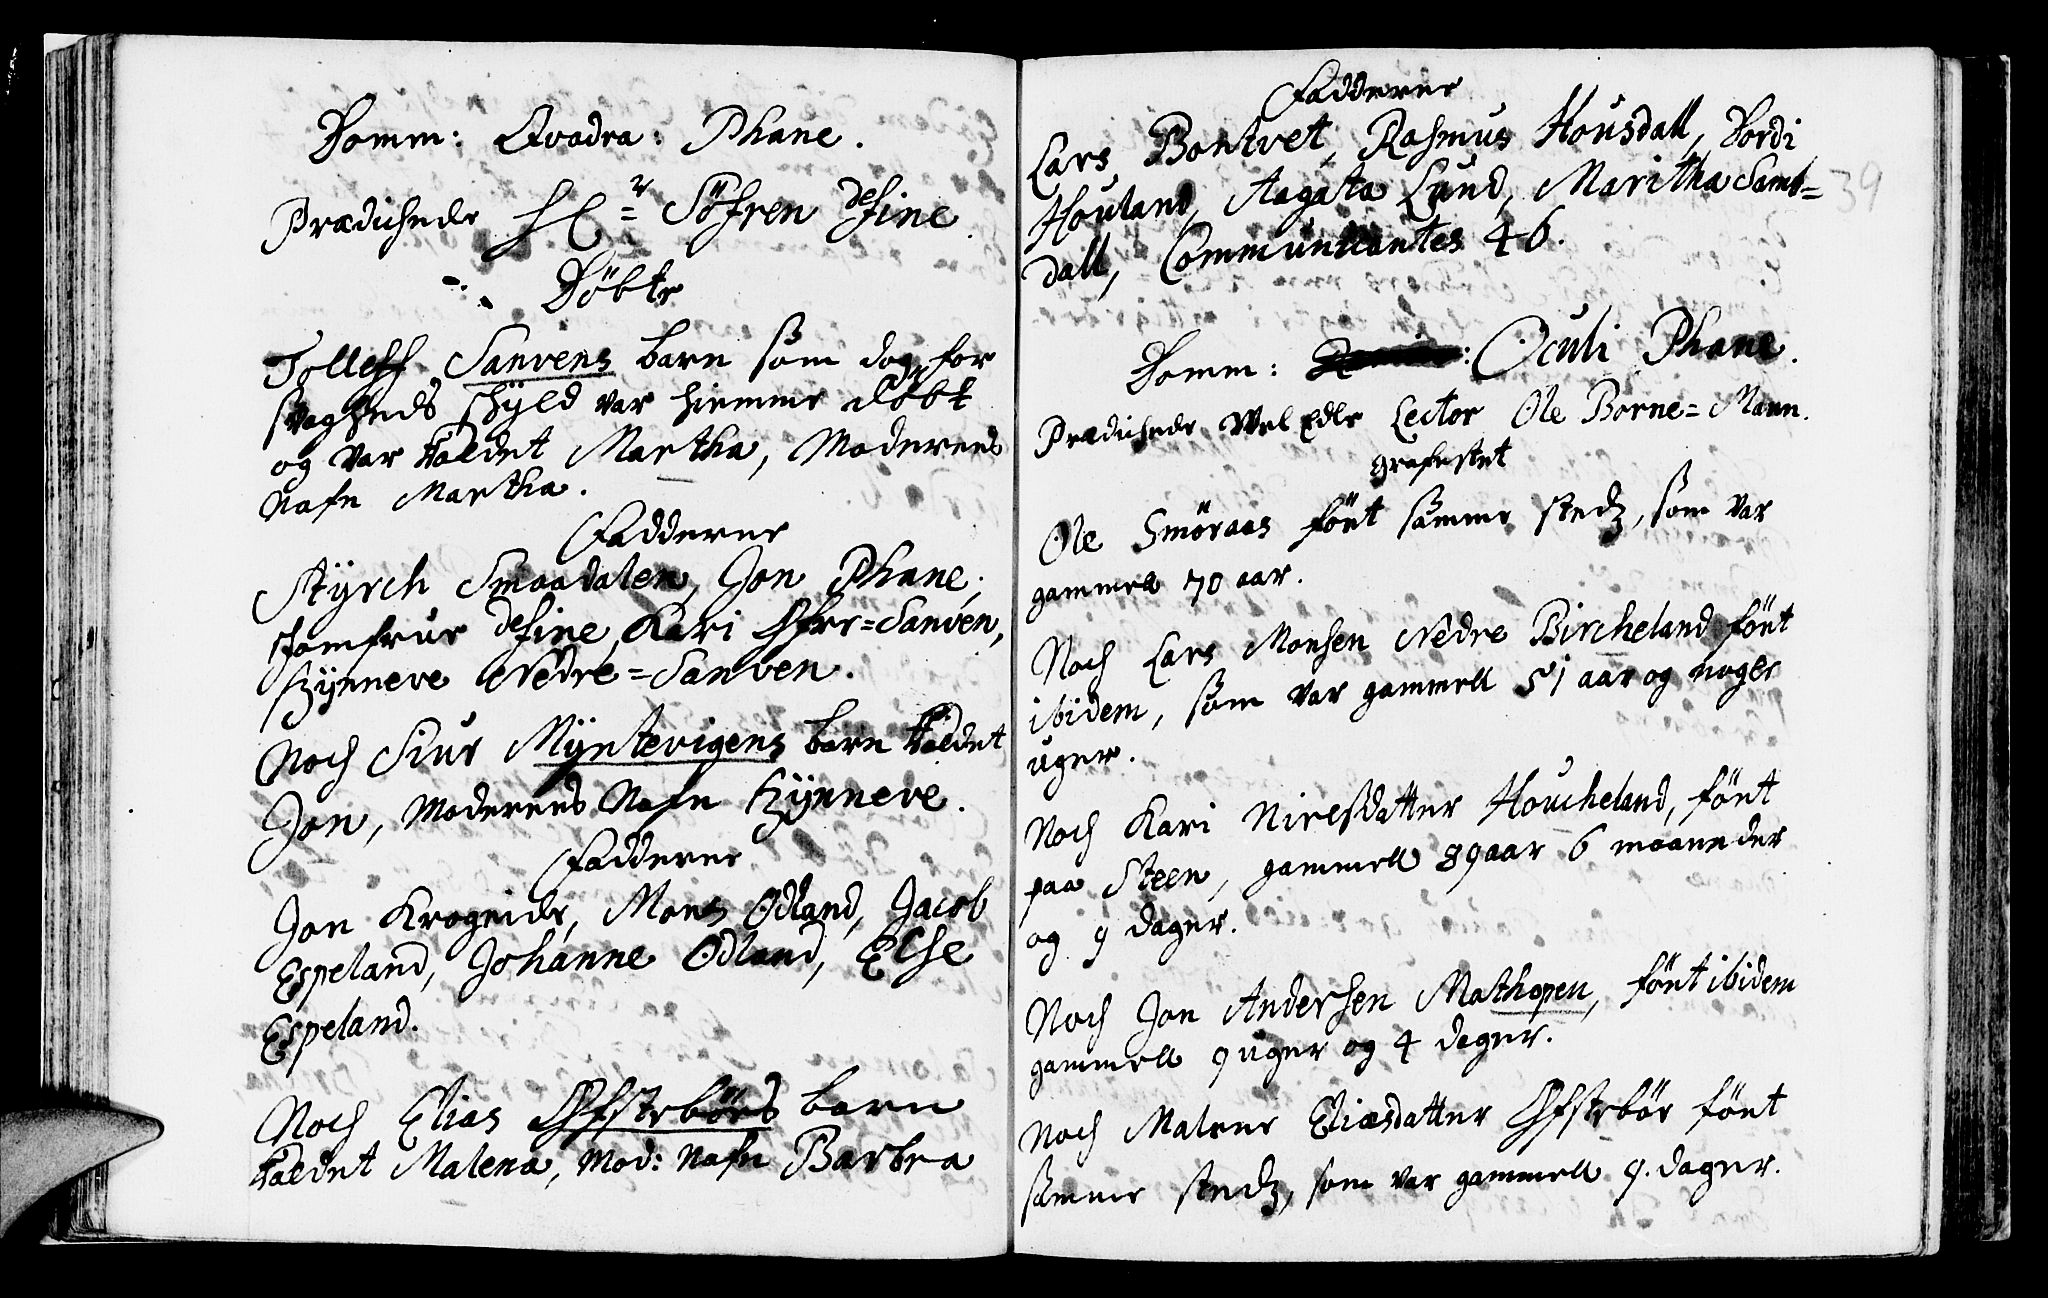 Domm: Qvadra: Phane.
Prædichede Hr Söfren de Fine.
Döbte
Tolleff Sanvens barn som dog for
svagheds schyld var hiemme döbt
og var kaldet Martha, Moderens
Nafn Martha.
Fadderne
Styrch Smaadalen, Jon Phane,
Jomfrue de Fine, Kari Øfre=Sanven,
Synneve Nedre=Sanven.
Noch Siur Myntevigens barn kaldet
Jon, Moderens Nafn Synneve.
Fadderne
Jon Krogeide, Mons Ødland, Jacob
Espeland, Johanne Ødland, Else
Espeland.
Noch Elias Øfstebörs barn
kaldet Malena, Mod: Nafn Barbra
39
Fadderne
Lars Bontvet, Rasmus Housdall, Dordi
Houland, Aagata Lund, Maritha Samb=
dall, Communicantes 46.
Domm: Oculi Phane.
Prædichede Wel Edle Lector Ole Borne=Mann.
grafestet
Ole Smøraas født samme stedz, som var
gammell 70 aar.
Noch Lars Monsen Nedre Bircheland født
ibidem, som var gammell 51 aar og nogle
uger.
Noch Kari Nielsdatter Houcheland, født
paa Steen, gammell 89 aar 6 maaneder
og 9 dager.
Noch Jon Andersen Mathopen, født ibidem
gammell 9 uger og 4 dager.
Noch Malene Eliædatter Øfstebör født
samme stedz, som var gammell 9. dager.